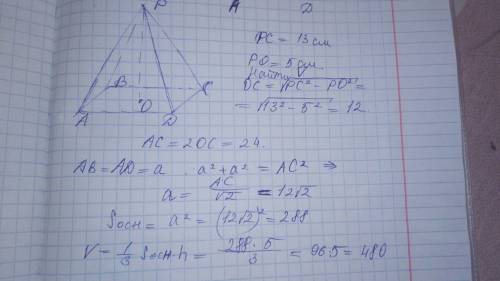 P
A D
B
C
A
O
D
PC = 13 см
PO = 5 см.
Найти
OC = √PC² - PO² =
= √13² - 5² = 12.
AC = 2OC = 24.
AB = AD = a . a² + a² = AC² ⇒
a = AC/√2 = 12√2
Sосн = a² = (12√2)² = 288
V = 1/3 Sосн·h = 288·5/3 = 96·5 = 480